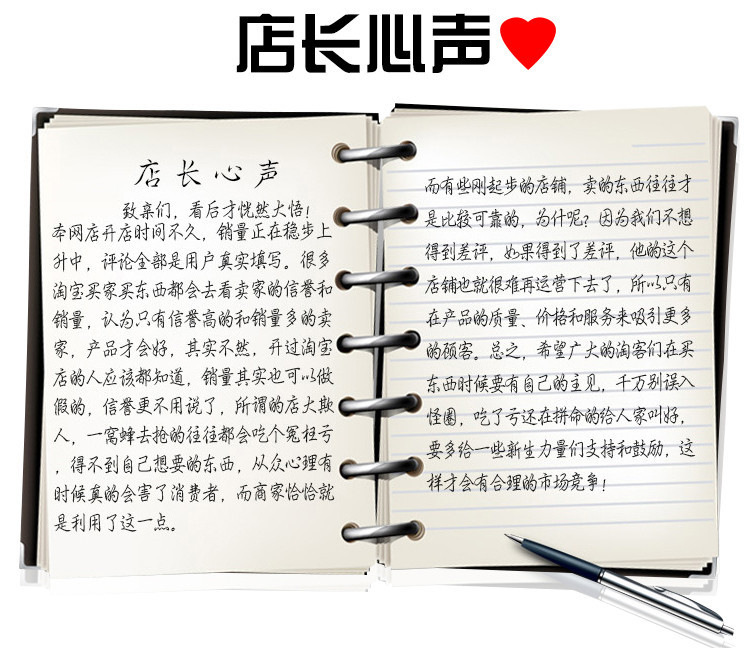 店长心声
店长心声
致亲们，看后才恍然大悟！
本网店开店时间不久，销量正在稳步上
升中，评论全部是用户真实填写。很多
淘宝买家买东西都会去看卖家的信誉和
销量，认为只有信誉高的和销量多的卖
家，产品才会好，其实不然，开过淘宝
店的人应该都知道，销量其实也可以做
假的，信誉更不用说了，所谓的店大欺
人，一窝蜂去抢的往往都会吃个冤枉亏
，得不到自己想要的东西，从众心理有
时候真的会害了消费者，而商家恰恰就
是利用了这一点。
而有些刚起步的店铺，卖的东西往往才
是比较可靠的，为什呢？因为我们不想
得到差评，如果得到了差评，他的这个
店铺也就很难再运营下去了，所以只有
在产品的质量、价格和服务来吸引更多
的顾客。总之，希望广大的淘客们在买
东西时候要有自己的主见，千万别误入
怪圈，吃了亏还在拼命的给人家叫好，
要多给一些新生力量们支持和鼓励，这
样才会有合理的市场竞争！